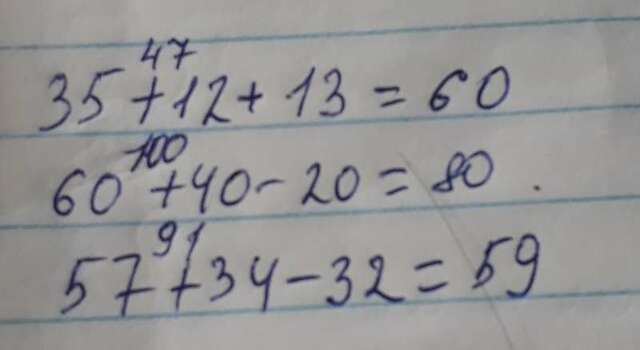 47
35 + 12 + 13 = 60
100
60 + 40 - 20 = 80 .
91
57 + 34 - 32 = 59